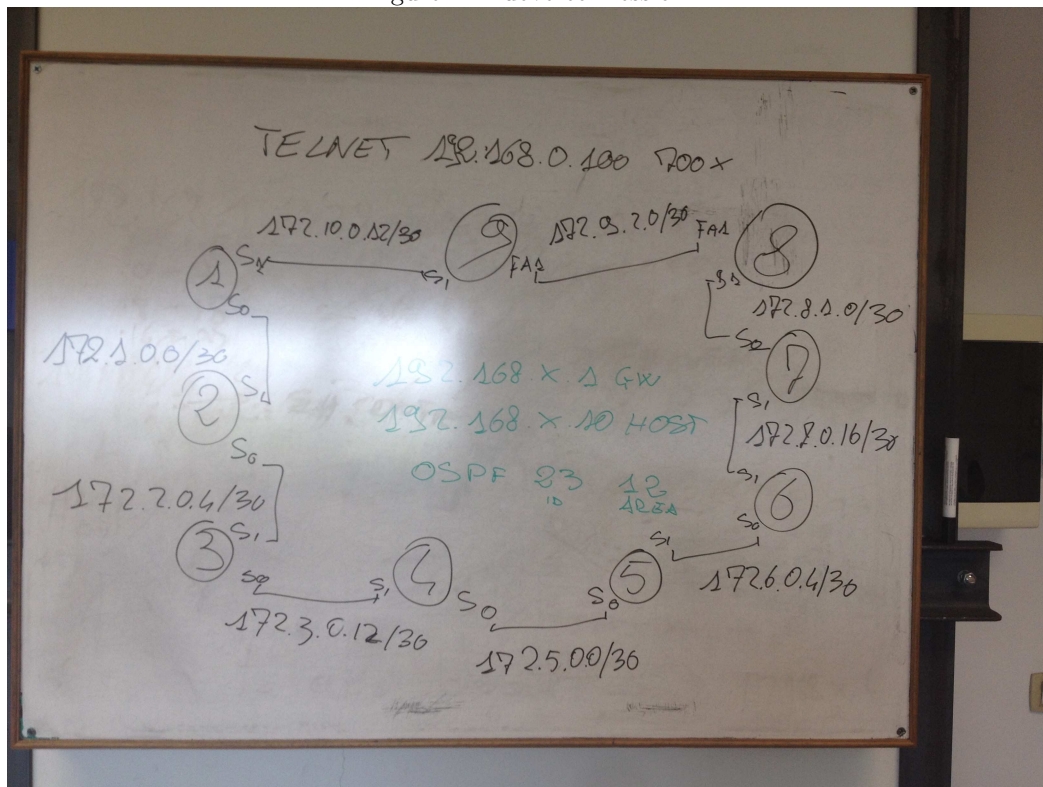 TELNET 192.168.0.100 700x
172.10.0.12/30
172.9.2.0/30
1 S1
S1 9 FA1
FA1 8
S0
S1
172.8.1.0/30
172.1.0.0/30
S0 7
192.168.X.1 GW
2 S1
S1
192.168.X.10 HOST
172.7.0.16/30
S0
OSPF 23 12
ID AREA
S1 6
172.2.0.4/30
S0
3 S1
S1
S0
S1 4 S0
S0 5
172.6.0.4/30
172.3.0.12/30
172.5.0.0/30